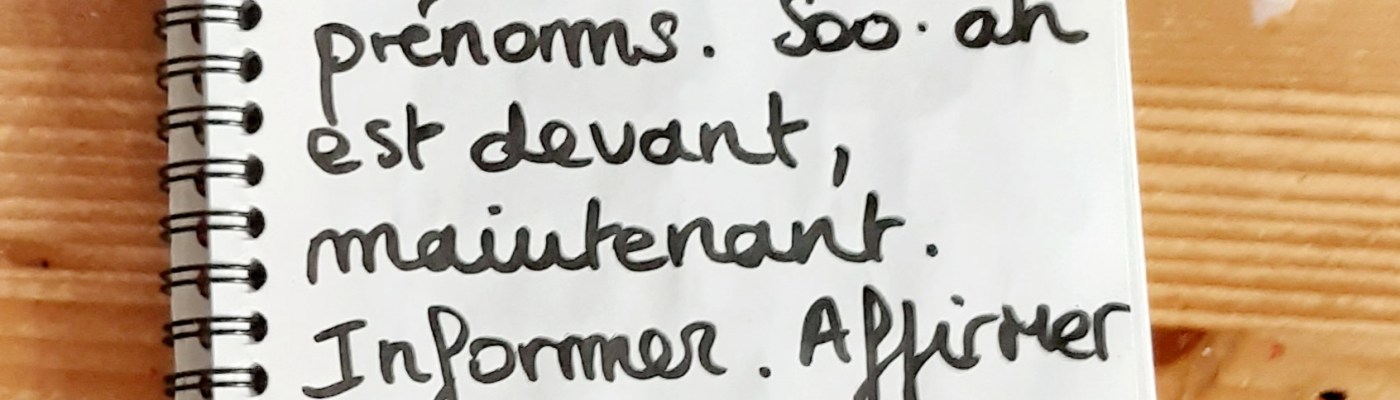 prénoms. Soo. ah
est devant,
maintenant.
Informer. Affirmer